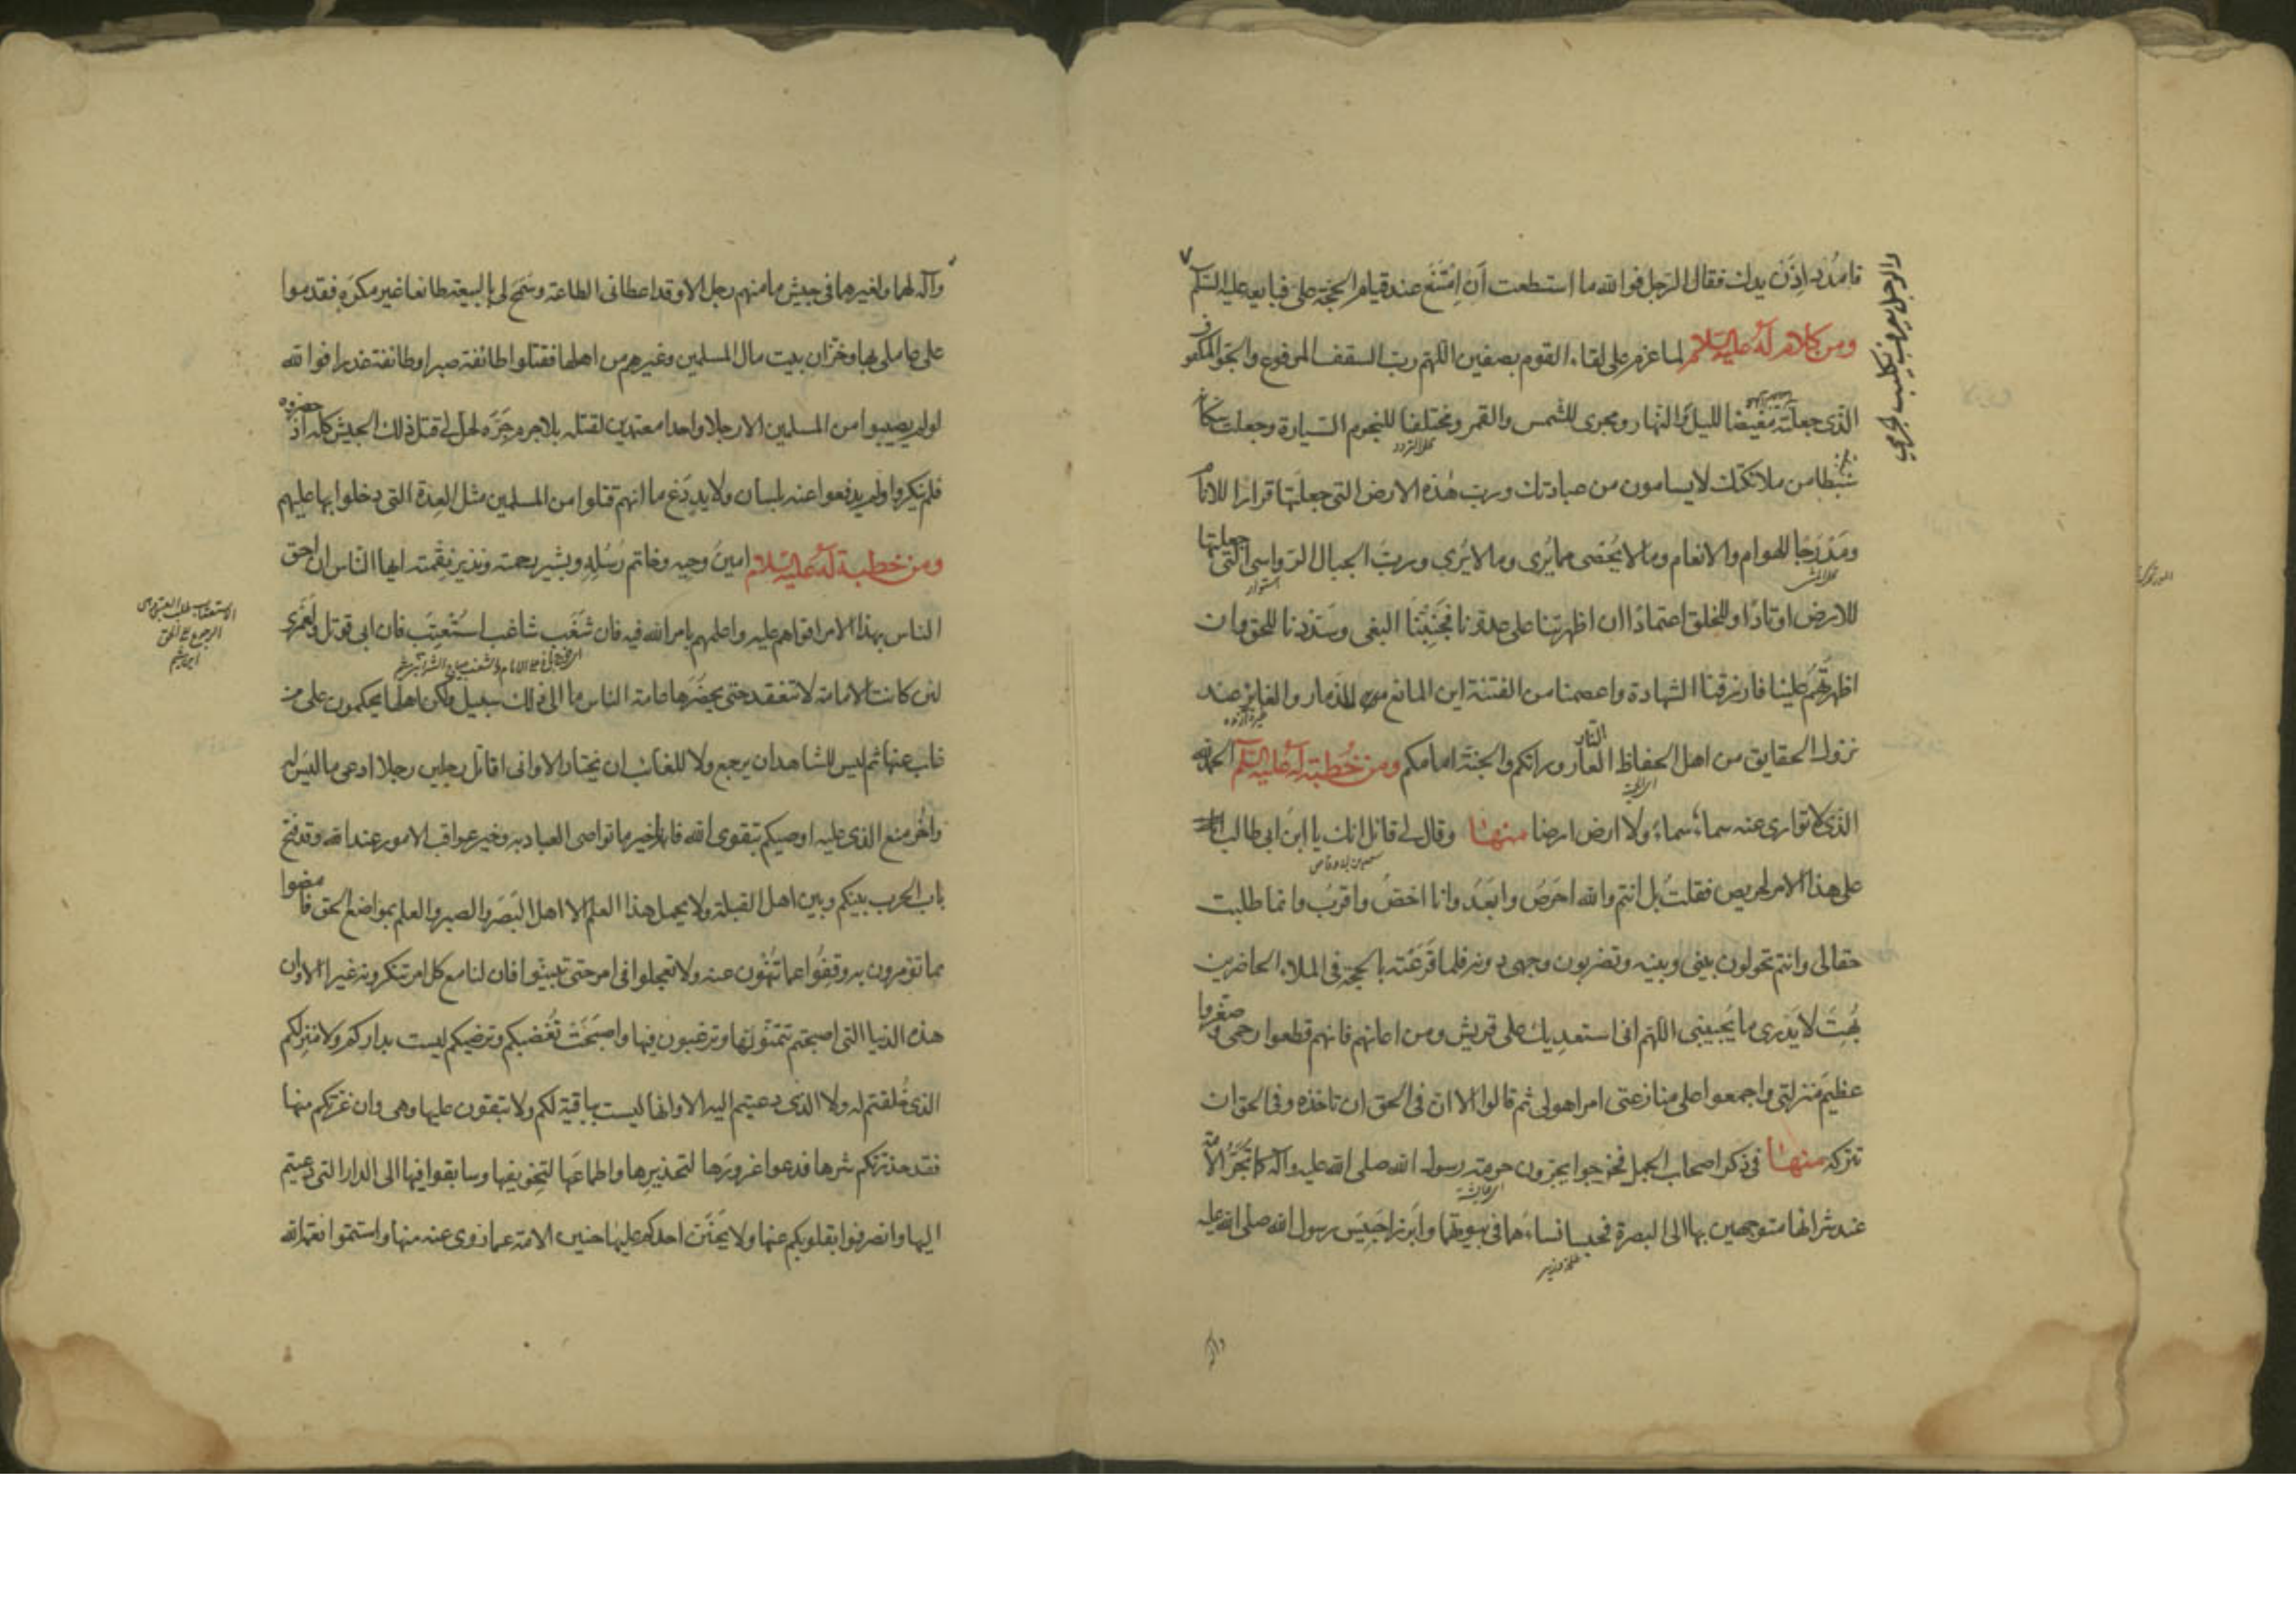 فامدد اذن يدك فقال الرجل فوالله ما استطعت ان امتنع عند قيام الحجة علي فبايعته عليه السلم
ومن كلام له عليه السلام لما عزم على لقاء القوم بصفين اللهم رب السقف المرفوع والجو المكفوف
الذى جعلته مغيضا لليل والنهار ومجرى للشمس والقمر ومختلفا للنجوم السيارة وجعلت سكانه
سبطا من ملائكتك لا يسامون من عبادتك ورب هذه الارض التى جعلتها قرارا للانام
ومدرجا للهوام والانعام وما لا يحصى مما يرى وما لا يرى ورب الجبال الرواسى التى جعلتها
للارض اوتادا وللخلق اعتمادا ان اظهرتنا على عدونا فجنبنا البغى وسددنا للحق وان
اظهرتهم علينا فارزقنا الشهادة واعصمنا من الفتنة اين المانع للذمار والغاير عند
نزول الحقايق من اهل الحفاظ العار وراءكم والجنة امامكم ومن خطبة له عليه السلم الحمد لله
الذى لا توارى عنه سماء سماء ولا ارض ارضا منها وقال لى قائل انك يا ابن ابى طالب
على هذا الامر لحريص فقلت بل انتم والله احرص وابعد وانا اخص واقرب وانما طلبت
حقا لى وانتم تحولون بينى وبينه وتضربون وجهى دونه فلما قرعته بالحجة فى الملاء الحاضرين
بهت لا يدرى ما يجيبنى اللهم انى استعديك على قريش ومن اعانهم فانهم قطعوا رحمى وصغروا
عظيم منزلتى واجمعوا على منازعتى امرا هو لى ثم قالوا الا ان فى الحق ان تاخذه وفى الحق ان
تتركه منها فى ذكر اصحاب الجمل فخرجوا يجرون حرمة رسول الله صلى الله عليه وآله كما تجر الامة
عند شرائها متوجهين بها الى البصرة فحبسا نساءهما فى بيوتهما وابرزا حبيس رسول الله صلى الله عليه
وآله
والرجل يعرف بكليب الجرمي
وآله لهما ولغيرهما فى جيش ما منهم رجل الا وقد اعطانى الطاعة وسمح لى بالبيعة طائعا غير مكره فقدموا
على عاملى بها وخزان بيت مال المسلمين وغيرهم من اهلها فقتلوا طائفة صبرا وطائفة غدرا فوالله
لو لم يصيبوا من المسلمين الا رجلا واحدا معتمدين لقتله بلا جرم جره لحل لى قتل ذلك الجيش كله اذ حضروه
فلم ينكروا ولم يدفعوا عنه بلسان ولا يد دع ما انهم قتلوا من المسلمين مثل العدة التى دخلوا بها عليهم
ومن خطبة له عليه السلام امين وحيه وخاتم رسله وبشير رحمته ونذير نقمته ايها الناس ان احق
الناس بهذا الامر اقواهم عليه واعلمهم بامر الله فيه فان شغب شاغب استعتب فان ابى قوتل ولعمرى
لئن كانت الامامة لا تنعقد حتى يحضرها عامة الناس ما الى ذلك سبيل ولكن اهلها يحكمون على من
غاب عنها ثم ليس للشاهد ان يرجع ولا للغائب ان يختار الا وانى اقاتل رجلين رجلا ادعى ما ليس له
وآخر منع الذى عليه اوصيكم بتقوى الله فانها خير ما تواصى العباد به وخير عواقب الامور عند الله وقد فتح
باب الحرب بينكم وبين اهل القبلة ولا يحمل هذا العلم الا اهل البصر والصبر والعلم بمواضع الحق فامضوا
بما تؤمرون به وقفوا عما تنهون عنه ولا تعجلوا فى امر حتى تبينوا فان لنا مع كل امر تنكرونه غيرا الا وان
هذه الدنيا التى اصبحتم تتمنونها وترغبون فيها واصبحت تغضبكم وترضيكم ليست بداركم ولا منزلكم
الذى خلقتم له ولا الذى دعيتم اليه الا وانها ليست بباقية لكم ولا تبقون عليها وهى وان غرتكم منها
فقد حذرتكم شرها فدعوا غرورها لتحذيرها واطماعها لتخويفها وسابقوا فيها الى الدار التى دعيتم
اليها وانصرفوا بقلوبكم عنها ولا يخنن احدكم عليها خنين الامة عما زوى عنه منها واستتموا نعم الله